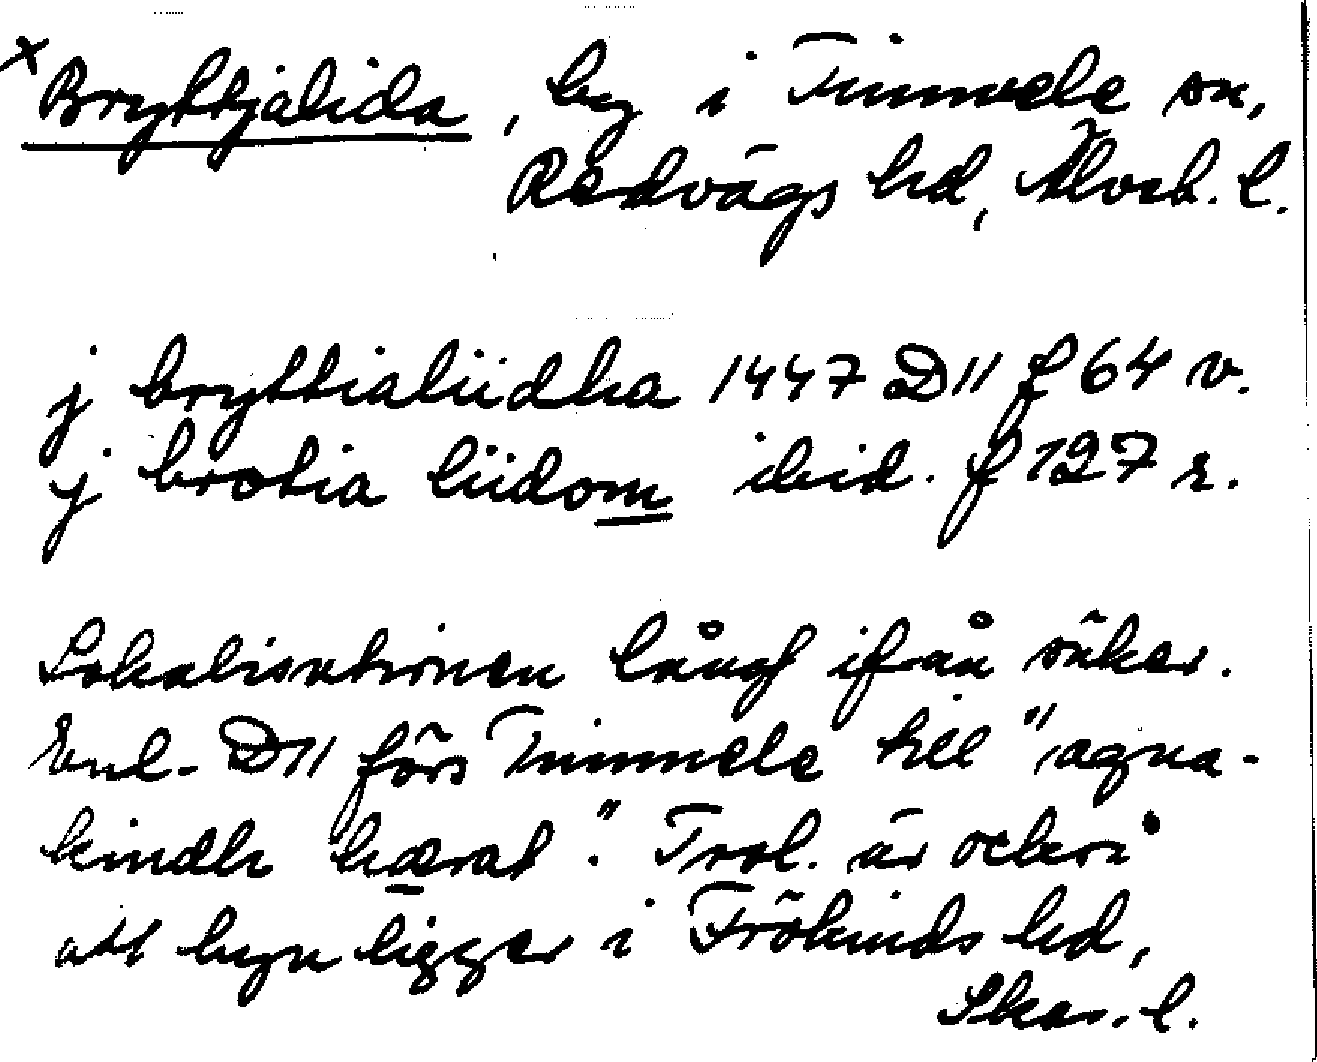 x Bryttjalida, by i Timmele sn,
Redvägs hd, Älvsb. l.
j bryttialiidha 1447 D11 f 64 v.
j brotia liidom ibid. f 127 r.
Lokalisationen långt ifrån säker.
Enl. D11 förs Timmele till "vagna-
kindh hæraf". Trol. är också
att byn ligger i Frökinds hd,
Skar. l.